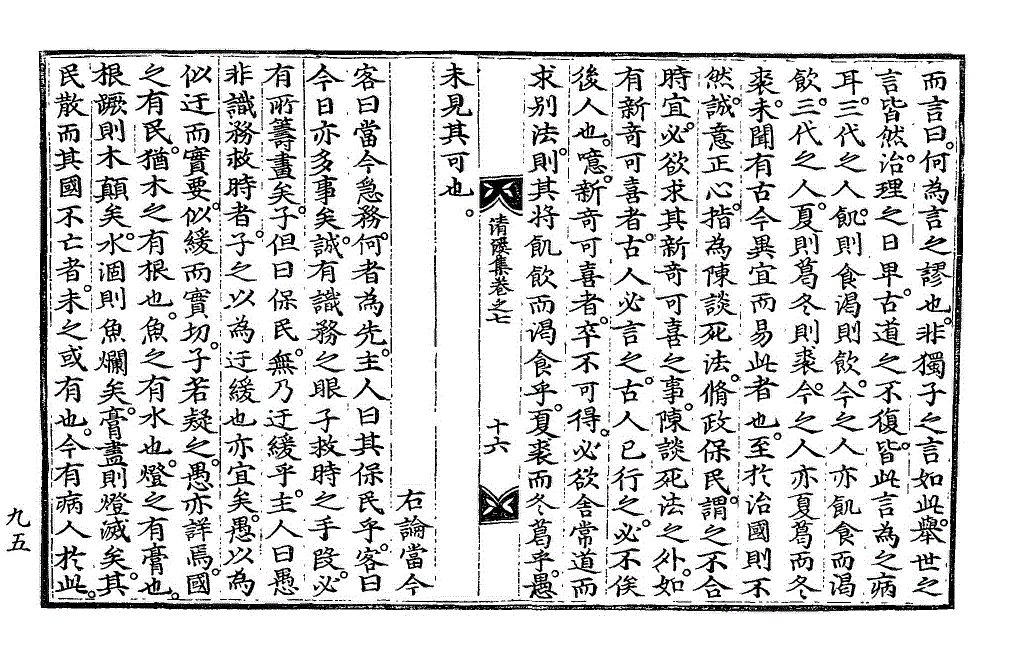 而言曰。何為言之謬也。非獨子之言如此。舉世之
言皆然。治理之日卑。古道之不復。皆此言為之病
耳。三代之人。飢則食渴則飲。今之人亦飢食而渴
飲。三代之人。夏則葛冬則裘。今之人亦夏葛而冬
裘。未聞有古今異宜而易此者也。至於治國則不
然。誠意正心。指為陳談死法。脩政保民。謂之不合
時宜。必欲求其新奇可喜之事。陳談死法之外。如
有新奇可喜者。古人必言之。古人已行之。必不俟
後人也。噫。新奇可喜者。卒不可得。必欲舍常道而
求別法。則其將飢飲而渴食乎。夏裘而冬葛乎。愚
清溪集卷之七
十六
未見其可也。
右論當今
客曰當今急務。何者為先。主人曰其保民乎。客曰
今日亦多事矣。誠有識務之眼子救時之手段。必
有所籌畫矣。子但曰保民。無乃迂緩乎。主人曰愚
非識務救時者。子之以為迂緩也亦宜矣。愚以為
似迂而實要。似緩而實切。子若疑之。愚亦詳焉。國
之有民。猶木之有根也。魚之有水也。燈之有膏也。
根蹶則木顛矣。水涸則魚爛矣。膏盡則燈滅矣。其
民散而其國不亡者。未之或有也。今有病人於此。
九五